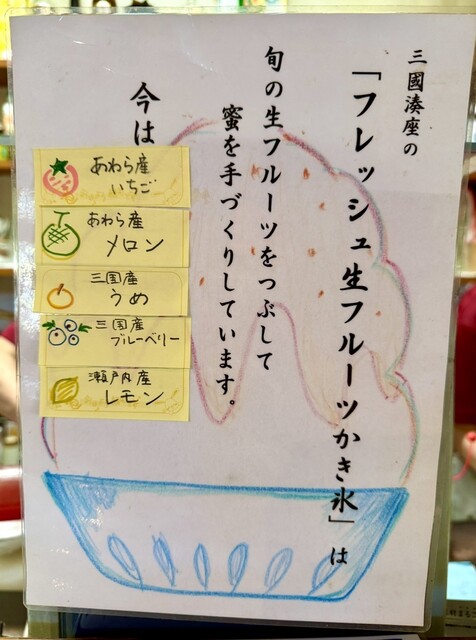 三國湊座の
「フレッシュ生フルーツかき氷」は
旬の生フルーツをつぶして
蜜を手づくりしています。
今は
あわら産
いちご
あわら産
メロン
三国産
うめ
三国産
ブルーベリー
瀬戸内産
レモン